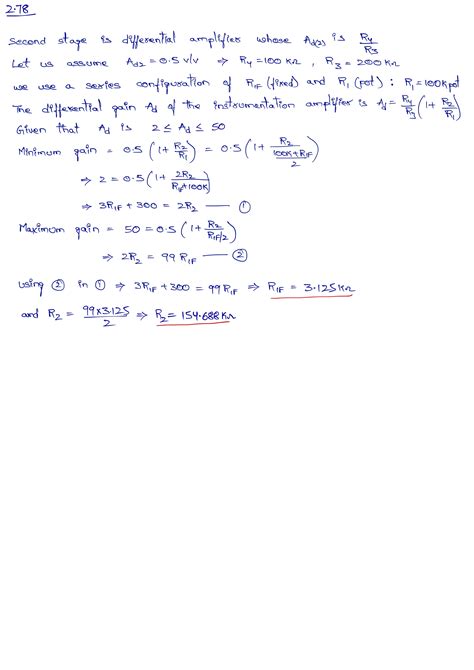 2.78
Second stage is differential amplifier whose Ad(2) is R4/R3
Let us assume Ad2 = 0.5 V/V ⇒ R4 = 100 KΩ, R3 = 200 KΩ
we use a series configuration of R1F (fixed) and R1 (pot) : R1 = 100K pot
The differential gain Ad of the instrumentation amplifier is Ad = R4/R3 (1 + R2/R1)
Given that Ad is 2 ≤ Ad ≤ 50
Minimum gain = 0.5 (1 + R2/R1) = 0.5 (1 + R2/((100K + R1F)/2))
⇒ 2 = 0.5 (1 + 2R2/(R1F + 100K))
⇒ 3R1F + 300 = 2R2 — ①
Maximum gain = 50 = 0.5 (1 + R2/(R1F/2))
⇒ 2R2 = 99 R1F — ②
using ② in ① ⇒ 3R1F + 300 = 99 R1F ⇒ R1F = 3.125 KΩ
and R2 = 99×3.125/2 ⇒ R2 = 154.688 KΩ